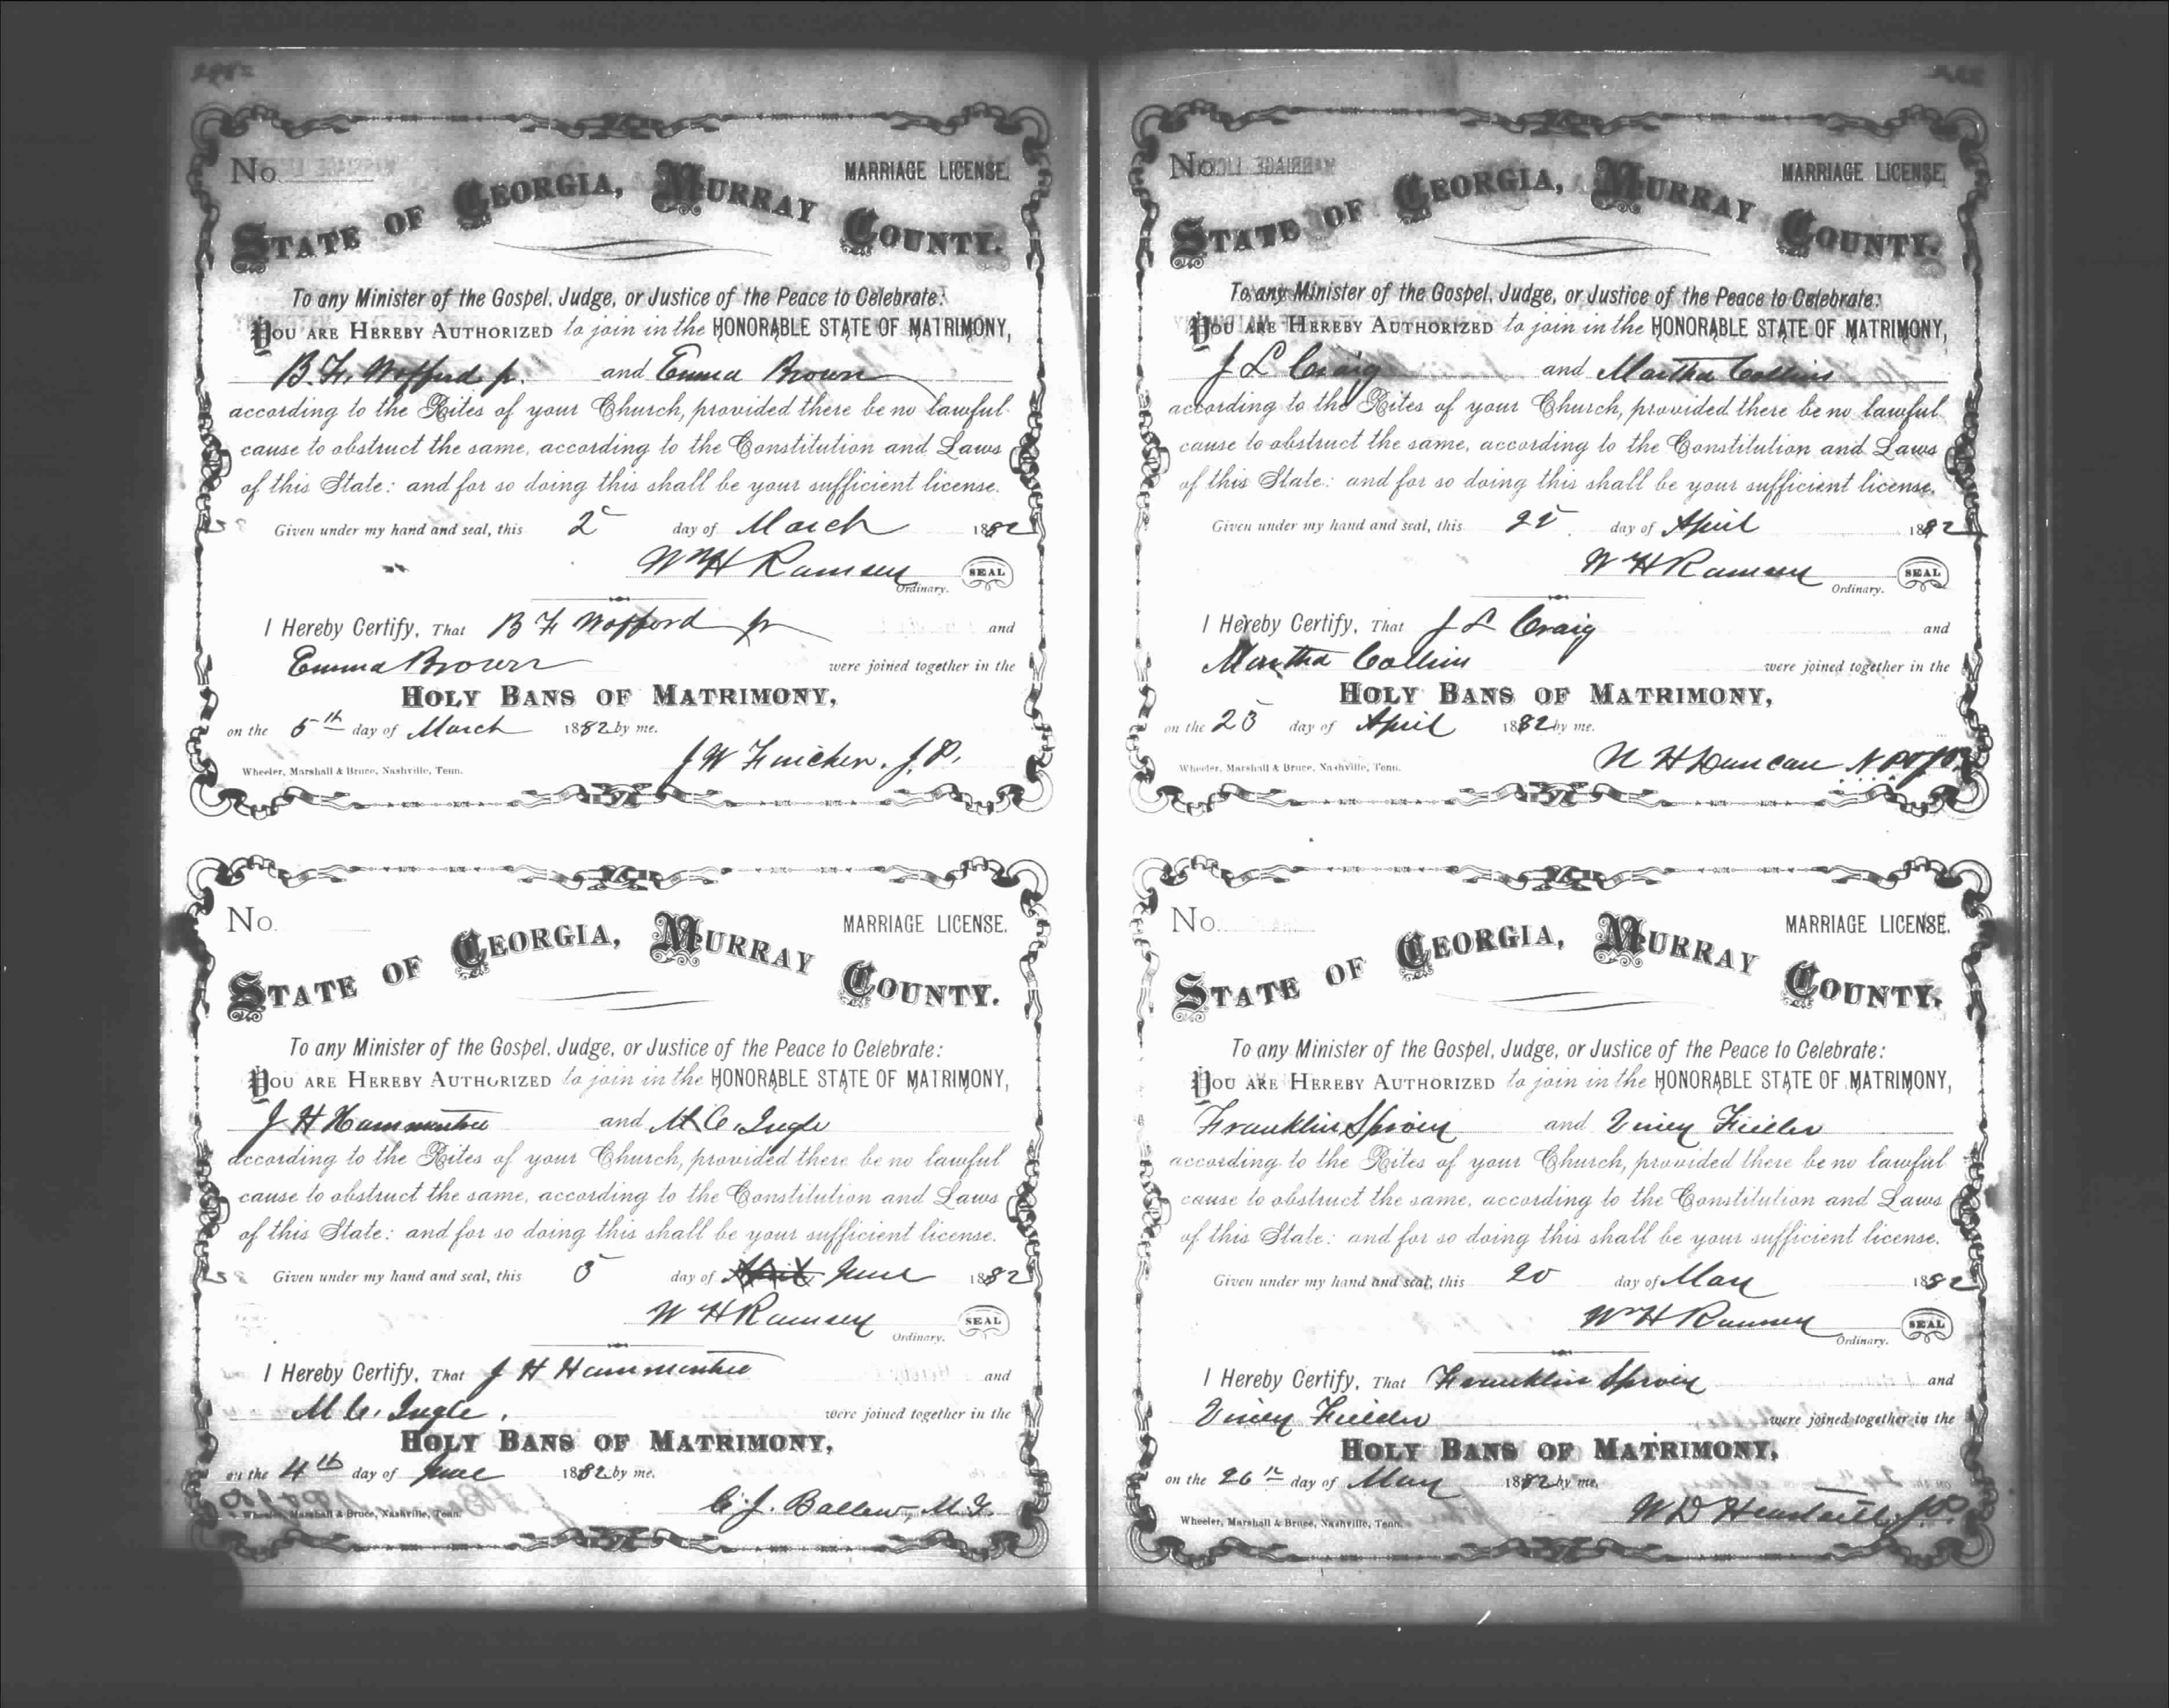 No. MARRIAGE LICENSE.
STATE OF GEORGIA, MURRAY COUNTY.
To any Minister of the Gospel, Judge, or Justice of the Peace to Celebrate:
YOU ARE HEREBY AUTHORIZED to join in the HONORABLE STATE OF MATRIMONY,
B. F. Wofford jr. and Emma Brown
according to the Rites of your Church, provided there be no lawful
cause to obstruct the same, according to the Constitution and Laws
of this State: and for so doing this shall be your sufficient license.
Given under my hand and seal, this 2 day of March 1882
Wm H Ramsey SEAL
Ordinary.
I Hereby Certify, That B F Wofford jr and
Emma Brown were joined together in the
HOLY BANS OF MATRIMONY,
on the 5th day of March 1882 by me.
J W J. P.
Wheeler, Marshall & Bruce, Nashville, Tenn.
No. MARRIAGE LICENSE.
STATE OF GEORGIA, MURRAY COUNTY.
To any Minister of the Gospel, Judge, or Justice of the Peace to Celebrate:
YOU ARE HEREBY AUTHORIZED to join in the HONORABLE STATE OF MATRIMONY,
J H Hammontree and M C. Ingle
according to the Rites of your Church, provided there be no lawful
cause to obstruct the same, according to the Constitution and Laws
of this State: and for so doing this shall be your sufficient license.
Given under my hand and seal, this day of April June 1882
Wm H Ramsey SEAL
Ordinary.
I Hereby Certify, That J H Hammontree and
M C. Ingle. were joined together in the
HOLY BANS OF MATRIMONY,
on the 4th day of June 1882 by me.
C. J. Ballew, M. G.
Wheeler, Marshall & Bruce, Nashville, Tenn.
No. MARRIAGE LICENSE
STATE OF GEORGIA, MURRAY COUNTY.
To any Minister of the Gospel, Judge, or Justice of the Peace to Celebrate:
YOU ARE HEREBY AUTHORIZED to join in the HONORABLE STATE OF MATRIMONY,
J L Craig and Martha Collins
according to the Rites of your Church, provided there be no lawful
cause to obstruct the same, according to the Constitution and Laws
of this State: and for so doing this shall be your sufficient license.
Given under my hand and seal, this day of April 1882
W H Ramsey SEAL
Ordinary.
I Hereby Certify, That J L Craig and
Martha Collins were joined together in the
HOLY BANS OF MATRIMONY,
on the 23 day of April 1882 by me.
N H Duncan
Wheeler, Marshall & Bruce, Nashville, Tenn.
No. MARRIAGE LICENSE.
STATE OF GEORGIA, MURRAY COUNTY.
To any Minister of the Gospel, Judge, or Justice of the Peace to Celebrate:
YOU ARE HEREBY AUTHORIZED to join in the HONORABLE STATE OF MATRIMONY,
Franklin and Viney
according to the Rites of your Church, provided there be no lawful
cause to obstruct the same, according to the Constitution and Laws
of this State: and for so doing this shall be your sufficient license.
Given under my hand and seal, this 20 day of May 1882
Wm H Ramsey SEAL
Ordinary.
I Hereby Certify, That Franklin and
Viney were joined together in the
HOLY BANS OF MATRIMONY,
on the 26th day of May 1882 by me.
W D J.P.
Wheeler, Marshall & Bruce, Nashville, Tenn.